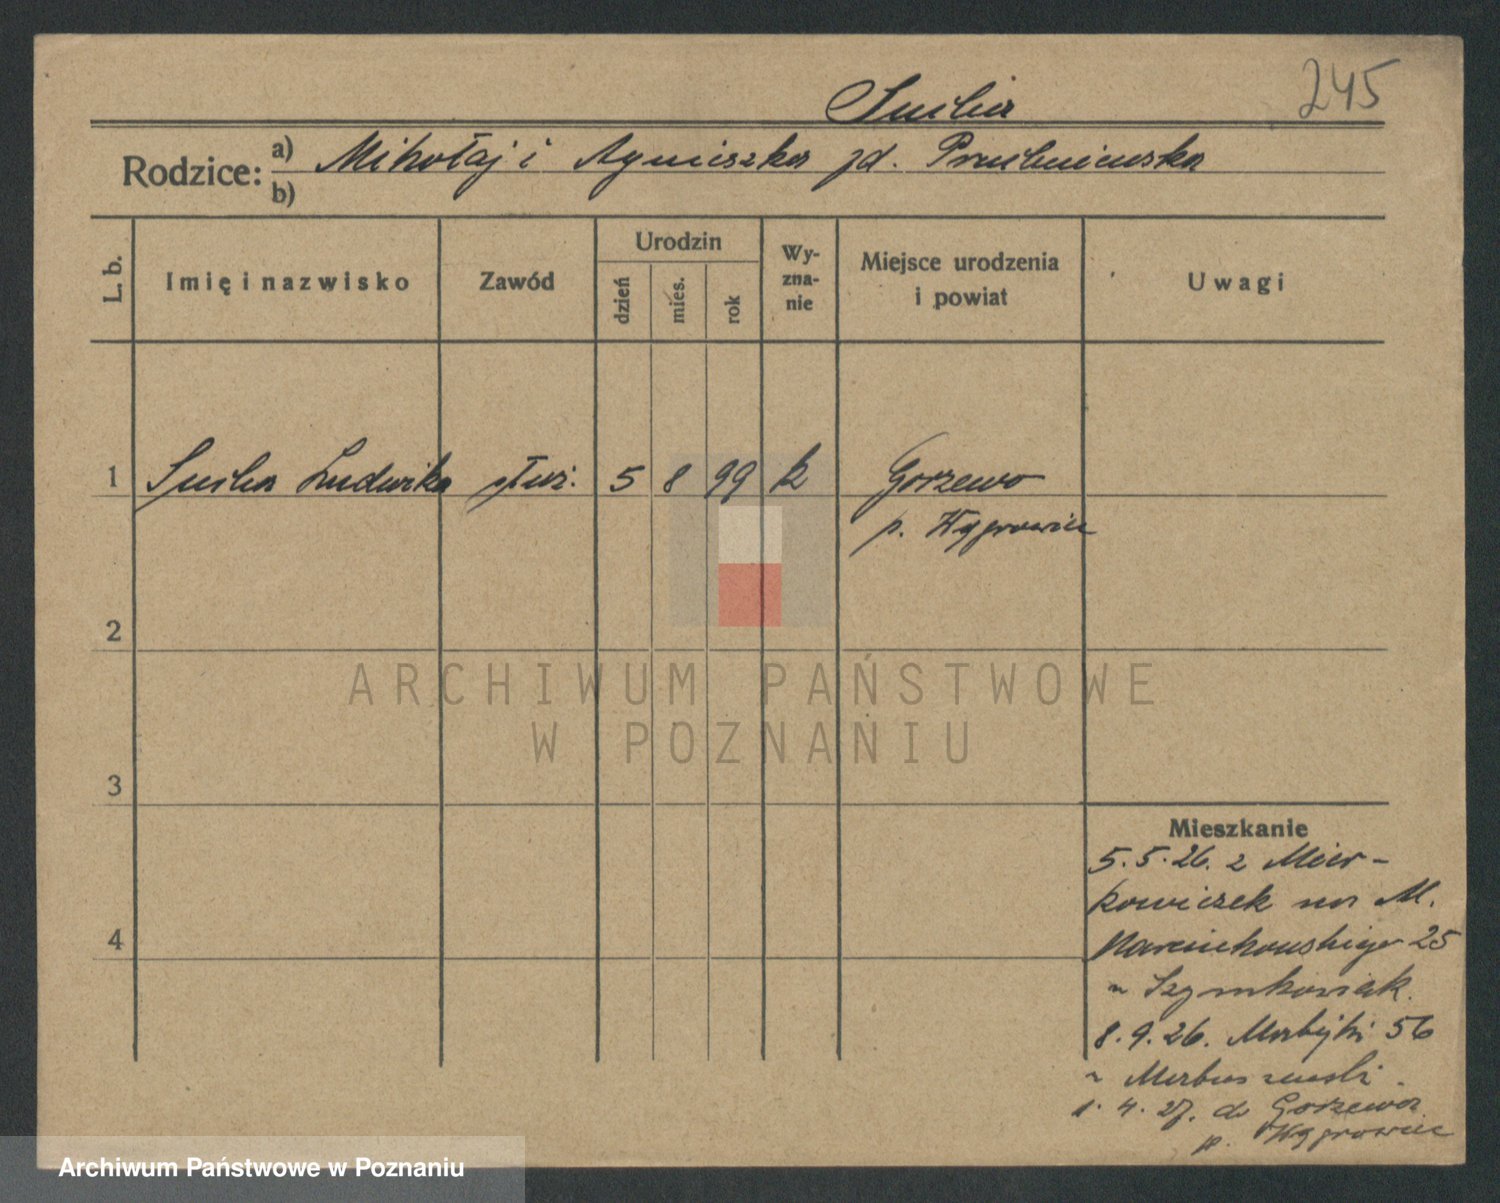 245
Rodzice: a) Mikołaj i Agnieszka zd.
b)
L. b.
Imię i nazwisko
Zawód
Urodzin
dzień
mies.
rok
Wy-
zna-
nie
Miejsce urodzenia
i powiat
Uwagi
1 Ludwika służ. 5 8 99 k Gorzewo
p. Wągrowiec
2
ARCHIWUM PAŃSTWOWE
W POZNANIU
3
4
Mieszkanie
5.5.26. z
na M.
Marcinkowskiego 25
Szymkowiak.
8.9.26. 56
1.4.27. do Gorzewa
p. Wągrowiec
Archiwum Państwowe w Poznaniu